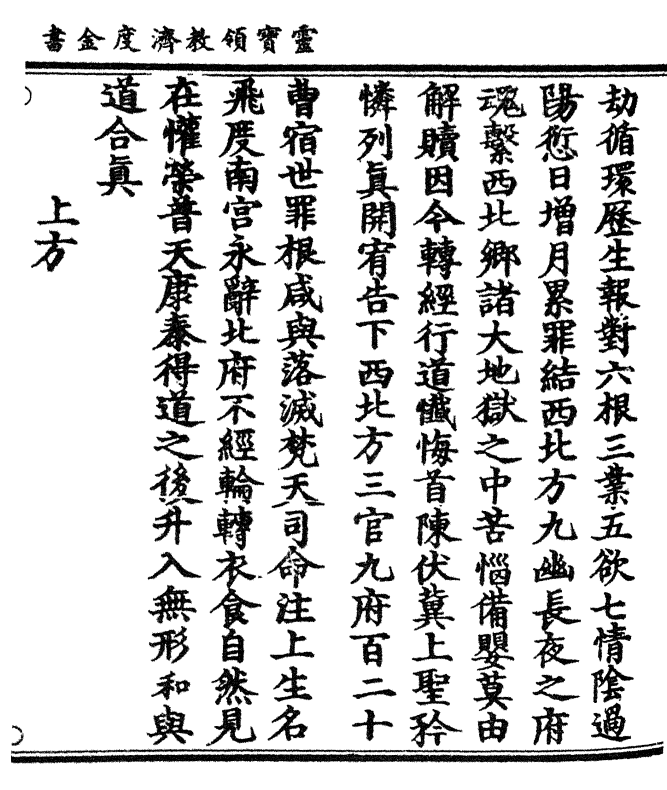 靈寶領教濟度金書
劫循環歷生報對六根三業五欲七情陰過
陽愆日增月累罪結西北方九幽長夜之府
魂繫西北鄉諸大地獄之中苦惱備嬰莫由
解贖因今轉經行道懺悔首陳伏冀上聖矜
憐列眞開宥告下西北方三官九府百二十
曹宿世罪根咸與落滅梵天司命注上生名
飛度南宮永辭北府不經輪轉衣食自然見
在懽榮普天康泰得道之後升入無形和與
道合眞
上方